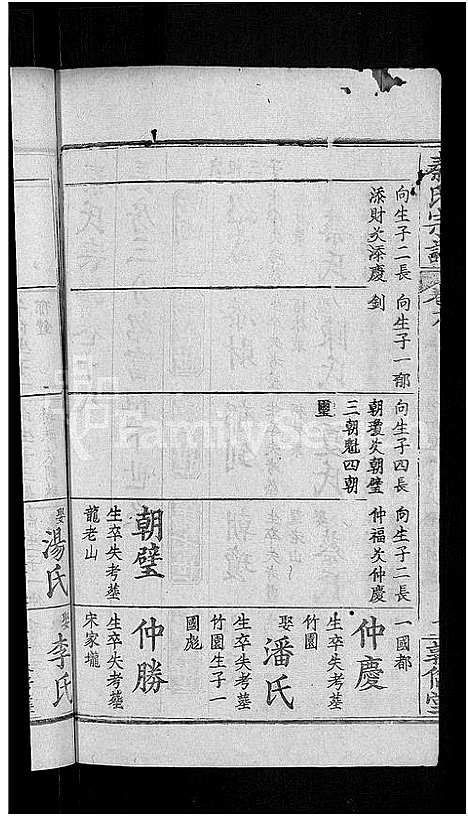 秦氏宗譜
敦倫堂
向生子二長
添財次添慶
向生子一郁
劍
向生子四長
朝瓊次朝璧
三朝魁四朝
璽
向生子二長
仲福次仲慶
一國都
仲慶
生卒失考塟
竹園
娶潘氏
生卒失考塟
竹園生子一
國彪
朝璧
生卒失考塟
龍老山
仲勝
生卒失考塟
宋家壠
娶湯氏
娶李氏
FamilySearch